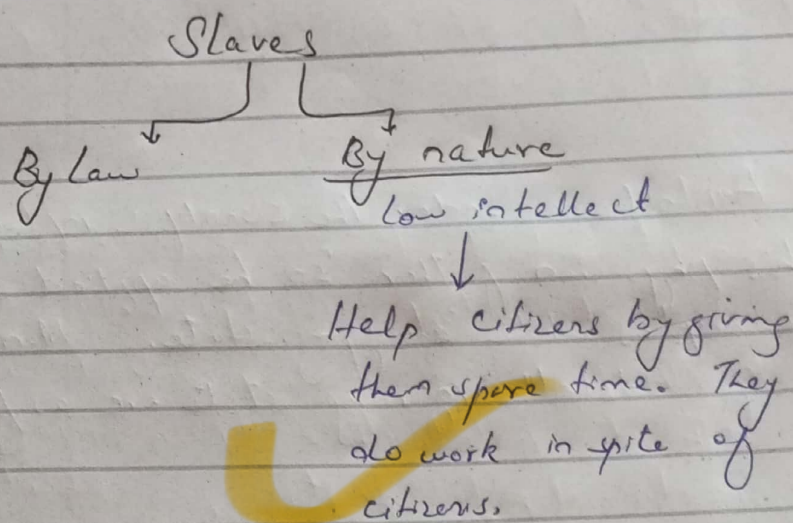 Slaves
By Law
By nature
Low intellect
Help citizens by giving
them spare time. They
do work in spite of
citizens.